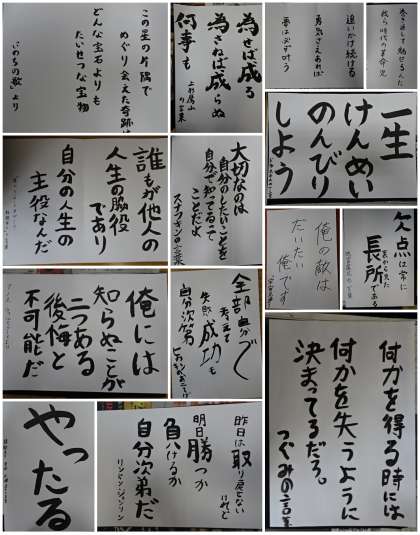 この星の片隅で
めぐり会えた奇跡は
どんな宝石よりも
たいせつな宝物
「いのちの歌」より
為せば成る
為さねば成らぬ
何事も
上杉鷹山
の言葉
追いかけ続ける
勇気さえあれば
夢は必ず叶う
巻き返して魅せるんだ
我ら時代の革命児
一生
けんめい
のんびり
しよう
誰もが他人の
人生の脇役
であり
自分の人生の
主役なんだ
大切なのは
自分のしたいことを
自分で知ってるって
ことだよ
スナフキンの言葉
俺の敵は
だいたい
俺です
欠点は常に
裏から見た
長所である
俺には
知らぬことが
二つある
後悔と
不可能だ
全部自分で
考えて
失敗も成功も
自分次第
何かを得る時には
何かを失うように
決まってるだろ。
つぐみの言葉
やったる
昨日は取り戻せない
けれど
明日勝つか
負けるか
自分次第だ
リンドン・ジョンソン